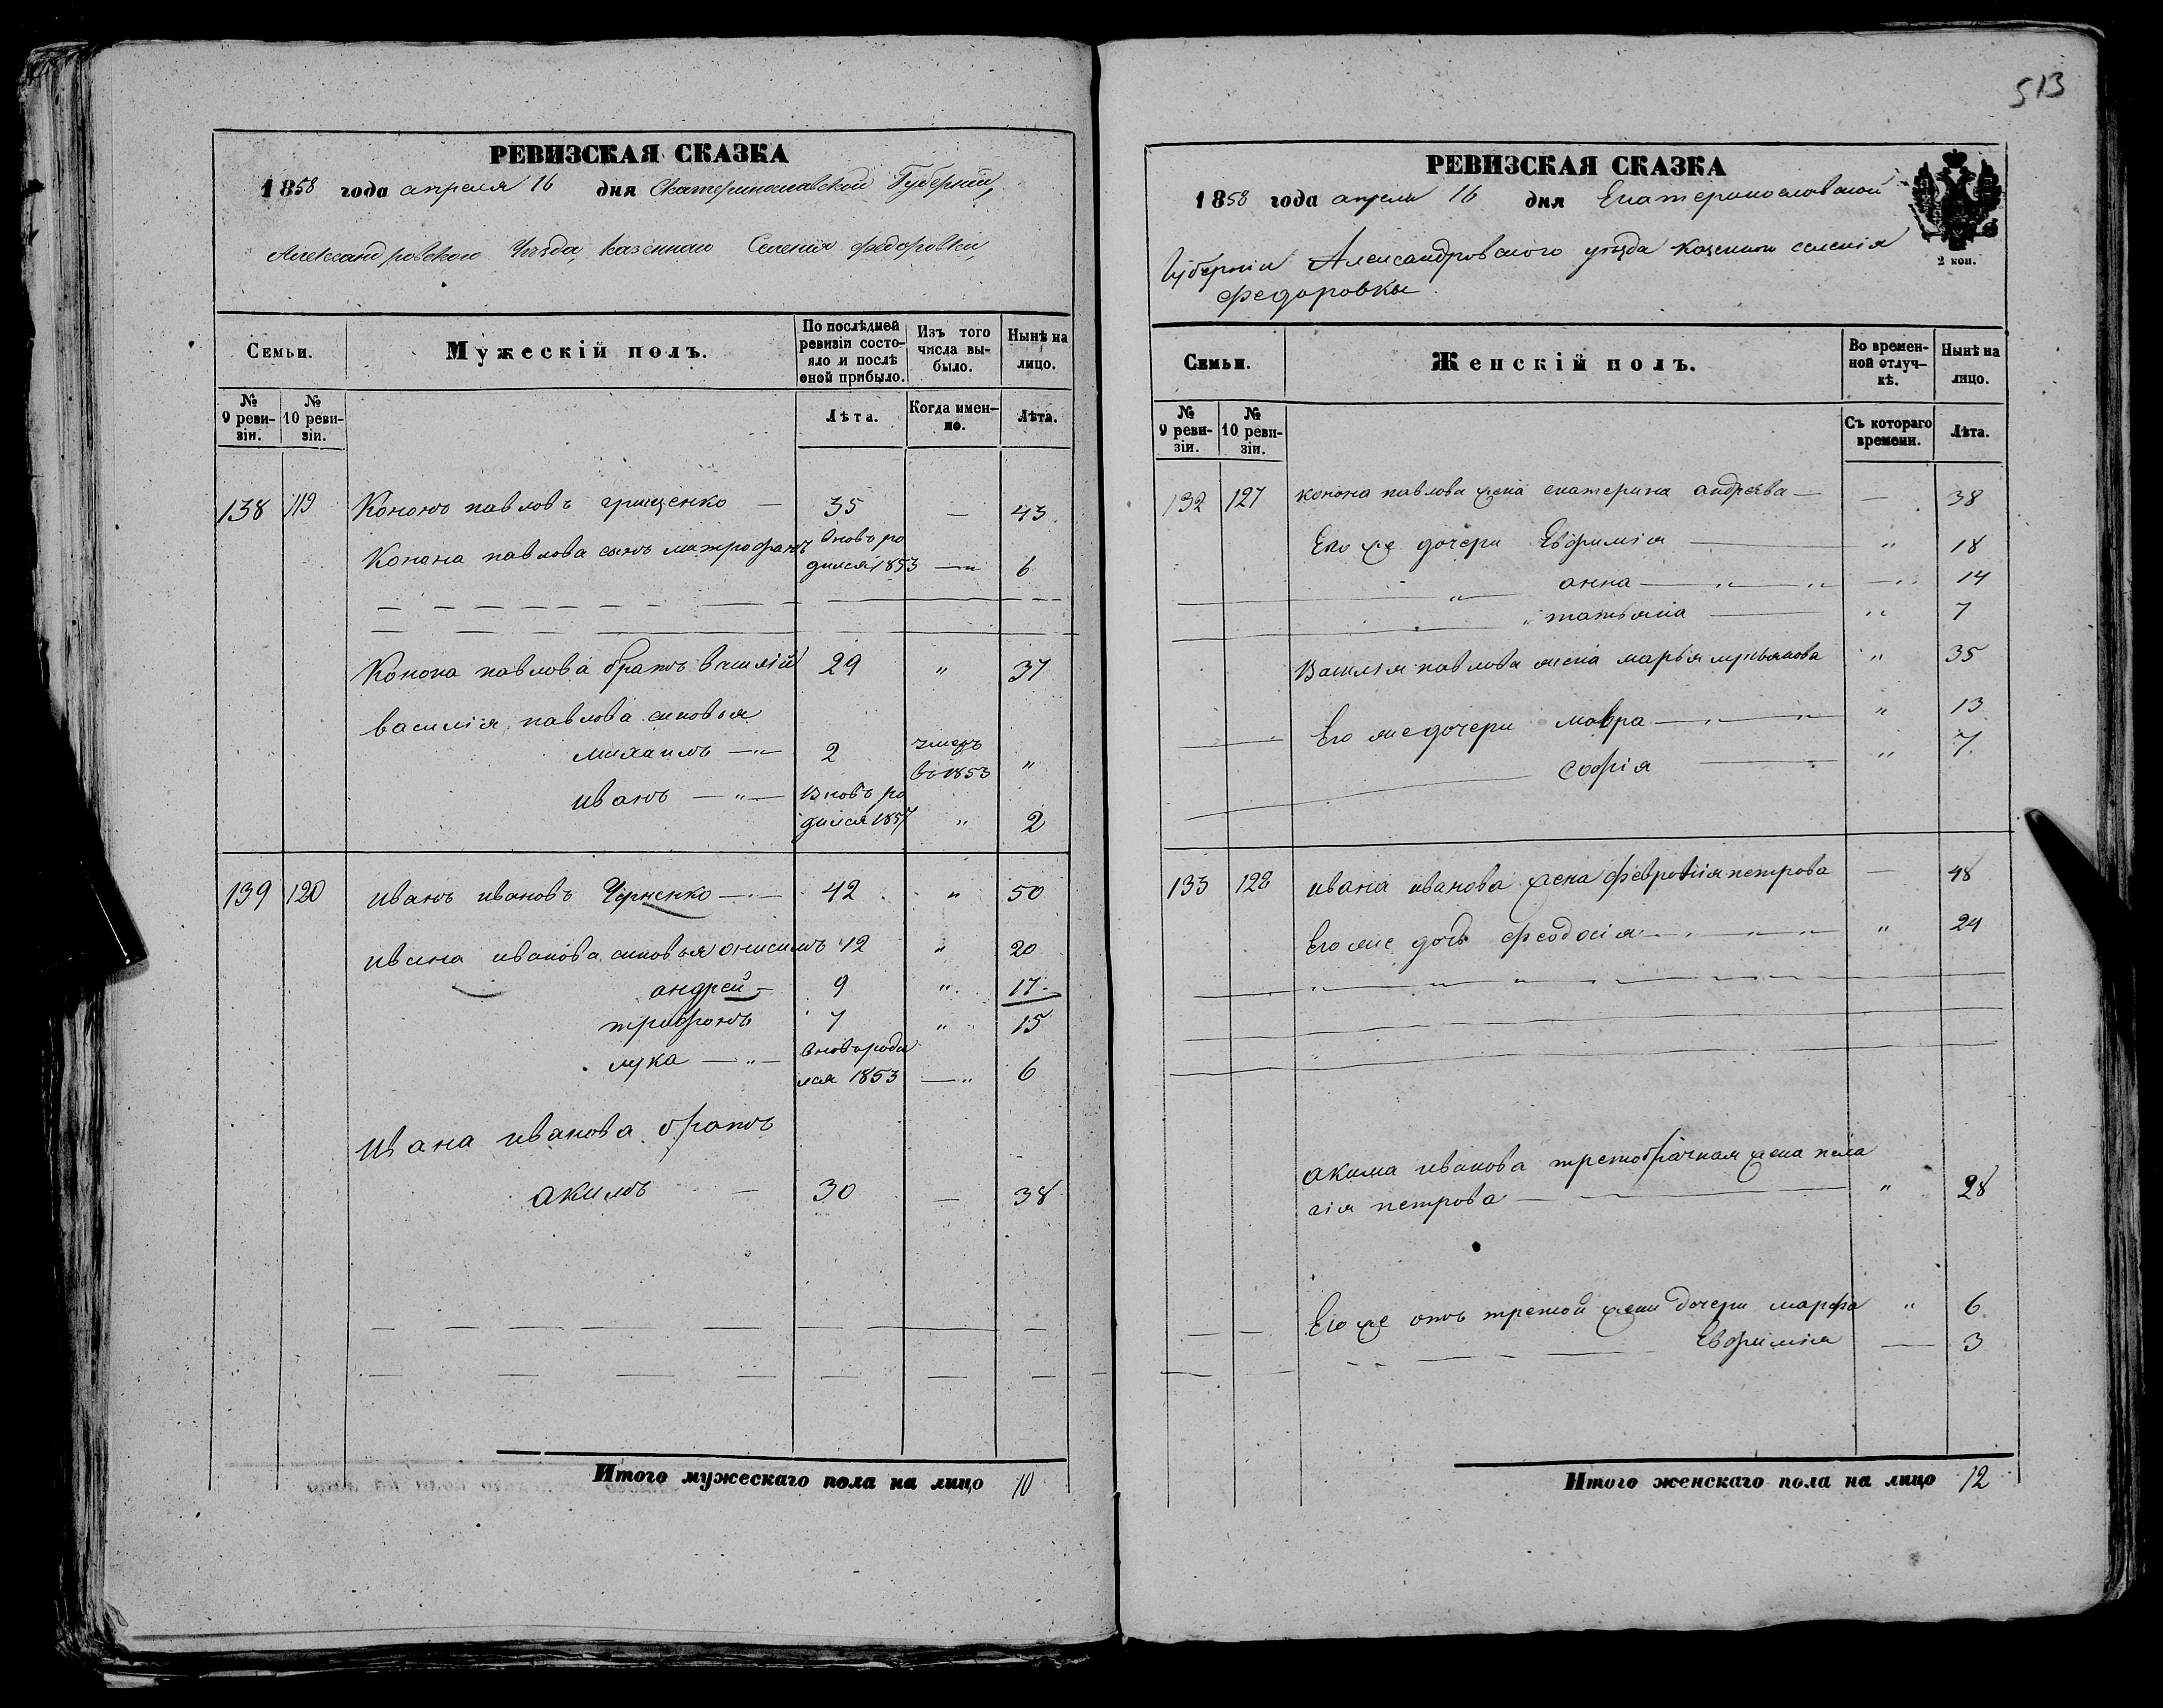 513
РЕВИЗСКАЯ СКАЗКА
1858 года апреля 16 дня Екатеринославской Губерніи,
Александровского Уѣзда, казеннаго Селенія федоровки,
Семьи.
Мужескій полъ.
По послѣдней ревизіи состояло и послѣ оной прибыло.
Изъ того числа выбыло.
Нынѣ на лицо.
№ 9 ревизіи.
№ 10 ревизіи.
Лѣта.
Когда именно.
Лѣта.
138 119 Кононъ павловъ грищенко — 35 — 43
Конона павлова сынъ митрофанъ вновь родился 1853 — " 6
Конона павлова братъ василій 29 " 37
василія павлова сыновья
михаилъ — " — 2 умеръ въ 1853 "
иванъ — " — Вновь родился 1857 " 2
139 120 иванъ ивановъ Чорненко — 42 " 50
ивана иванова сыновья онисимъ 12 " 20
андрей — 9 " 17
трифонъ 7 " 15
лука — " — вновь родился 1853 — " 6
Ивана иванова братъ
акимъ — 30 — 38
Итого мужескаго пола на лицо 10
РЕВИЗСКАЯ СКАЗКА
1858 года апреля 16 дня Екатеринославской
Губерніи Александровского уѣзда казенного селенія
федоровки
2 коп.
Семьи.
Женскій полъ.
Во временной отлучкѣ.
Нынѣ на лицо.
№ 9 ревизіи.
№ 10 ревизіи.
Съ котораго времени.
Лѣта.
132 127 конона павлова жена екатерина андреева — — 38
Его же дочери Евфимія — " 18
" анна — " — " — " 14
" татьяна — " 7
Василія павлова жена марья лукьянова " 35
Его же дочери мавра — " — " " 13
софія — " 7
133 128 ивана иванова жена февронія петрова — 48
Его же дочь феодосія — " — " — " " 24
акима иванова третобрачная жена пела
гія петрова — " 28
Его же отъ третой жены дочери марфа " 6
Евфимія — 3
Итого женскаго пола на лицо 12